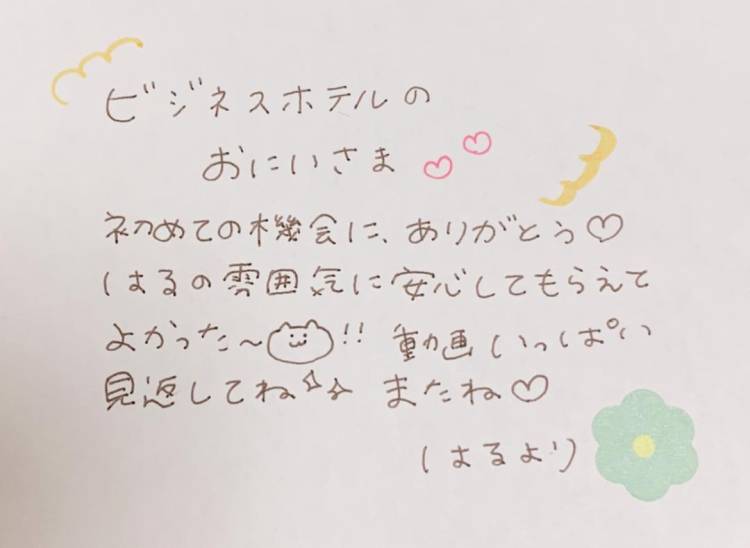 ビジネスホテルの
おにいさま
初めての機会に、ありがとう♡
はるの雰囲気に安心してもらえて
よかった〜!! 動画いっぱい
見返してね またね♡
はるより